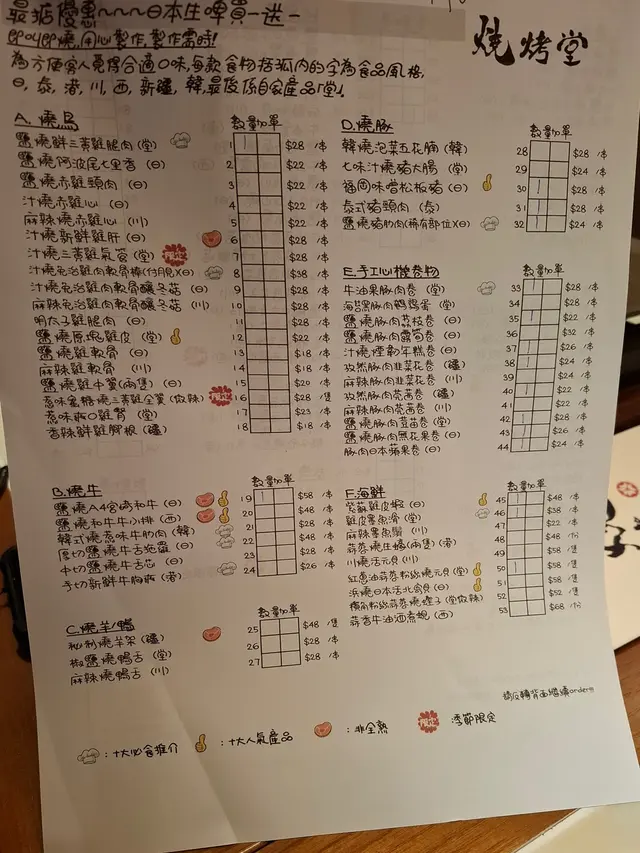 最抵優惠~~~日本生啤買一送一
即叫即燒,用心製作,製作需時!
為方便客人覓得合適口味,每款食物括弧內的字為食品風格,
日,泰,港,川,西,新疆,韓,最後係自家產品「堂」.
燒烤堂
A. 燒鳥 數量 加單
鹽燒鮮三黃雞腿肉(堂) 1 $28 /本
鹽燒阿波尾七里香(日) 2 $22 /本
鹽燒赤雞頸肉(日) 3 $22 /本
汁燒赤雞心(日) 4 $22 /本
麻辣燒赤雞心(川) 5 $22 /本
汁燒新鮮雞肝(日) 6 $28 /本
汁燒三黃雞氣管(堂) 限定 7 $28 /本
汁燒免治雞肉軟骨棒(付月見)(日) 8 $38 /本
汁燒免治雞肉軟骨釀冬菇(日) 9 $28 /本
麻辣免治雞肉軟骨釀冬菇(川) 10 $28 /本
明太子雞腿肉(日) 11 $28 /本
鹽燒原塊雞皮(堂) 12 $22 /本
鹽燒雞軟骨(日) 13 $18 /本
麻辣雞軟骨(川) 14 $18 /本
鹽燒雞中翼(兩隻)(日) 15 $20 /本
惹味蜜糖燒三黃雞全翼(微辣) 限定 16 $28 /隻
惹味爽口雞腎(堂) 17 $23 /本
香辣鮮雞腳板(疆) 18 $18 /本
B. 燒牛 數量 加單
鹽燒A4宮崎和牛(日) 19 $58 /本
鹽燒和牛牛小排(西) 20 $48 /本
韓式燒惹味牛肋肉(韓) 21 $28 /本
厚切鹽燒牛舌(日) 22 $48 /本
中切鹽燒牛舌芯(日) 23 $28 /本
手切新鮮牛胸爽(港) 24 $26 /本
C. 燒羊/鴨 數量 加單
秘制燒羊架(疆) 25 $48 /隻
椒鹽燒鴨舌(堂) 26 $28 /本
麻辣燒鴨舌(川) 27 $28 /本
D. 燒豚 數量 加單
韓燒泡菜五花腩(韓) 28 $28 /本
七味汁燒豬大腸(堂) 29 $24 /本
福岡味噌松板豬(日) 30 $28 /本
泰式豬頸肉(泰) 31 $28 /本
鹽燒豬肋肉(稀有部位)(日) 32 $24 /本
E. 手工心機卷物 數量 加單
牛油果豚肉卷(堂) 33 $28 /本
海苔豚肉鵪鶉蛋(堂) 34 $28 /本
鹽燒豚肉荔枝卷(日) 35 $22 /本
鹽燒豚肉露筍卷(日) 36 $32 /本
汁燒煙彰年糕卷(日) 37 $26 /本
孜然豚肉韭菜花卷(疆) 38 $24 /本
麻辣豚肉韭菜花卷(川) 39 $24 /本
孜然豚肉芫茜卷(疆) 40 $22 /本
麻辣豚肉芫茜卷(川) 41 $22 /本
鹽燒豚肉豆苗卷(堂) 42 $28 /本
鹽燒豚肉無花果卷(日) 43 $26 /本
豚肉日本蘋果卷(日) 44 $24 /本
F. 海鮮 數量 加單
紫蘇雞皮蝦(日) 45 $48 /本
雞皮墨魚滑(堂) 46 $38 /本
麻辣墨魚鬚(川) 47 $22 /本
蒜蓉燒生蠔(兩隻)(港) 48 $48 /份
川燒活元貝(川) 49 $52 /隻
紅蔥油蒜蓉粉絲燒元貝(堂) 50 $58 /隻
浜燒日本活北寄貝(日) 51 $58 /隻
粉絲蒜蓉燒蟶子(堂)微辣 52 $52 /隻
蒜香牛油酒煮蜆(西) 53 $68 /份
請反轉背面繼續order!!!
:十大必食推介 :十大人氣產品 :非全熟 限定 :季節限定